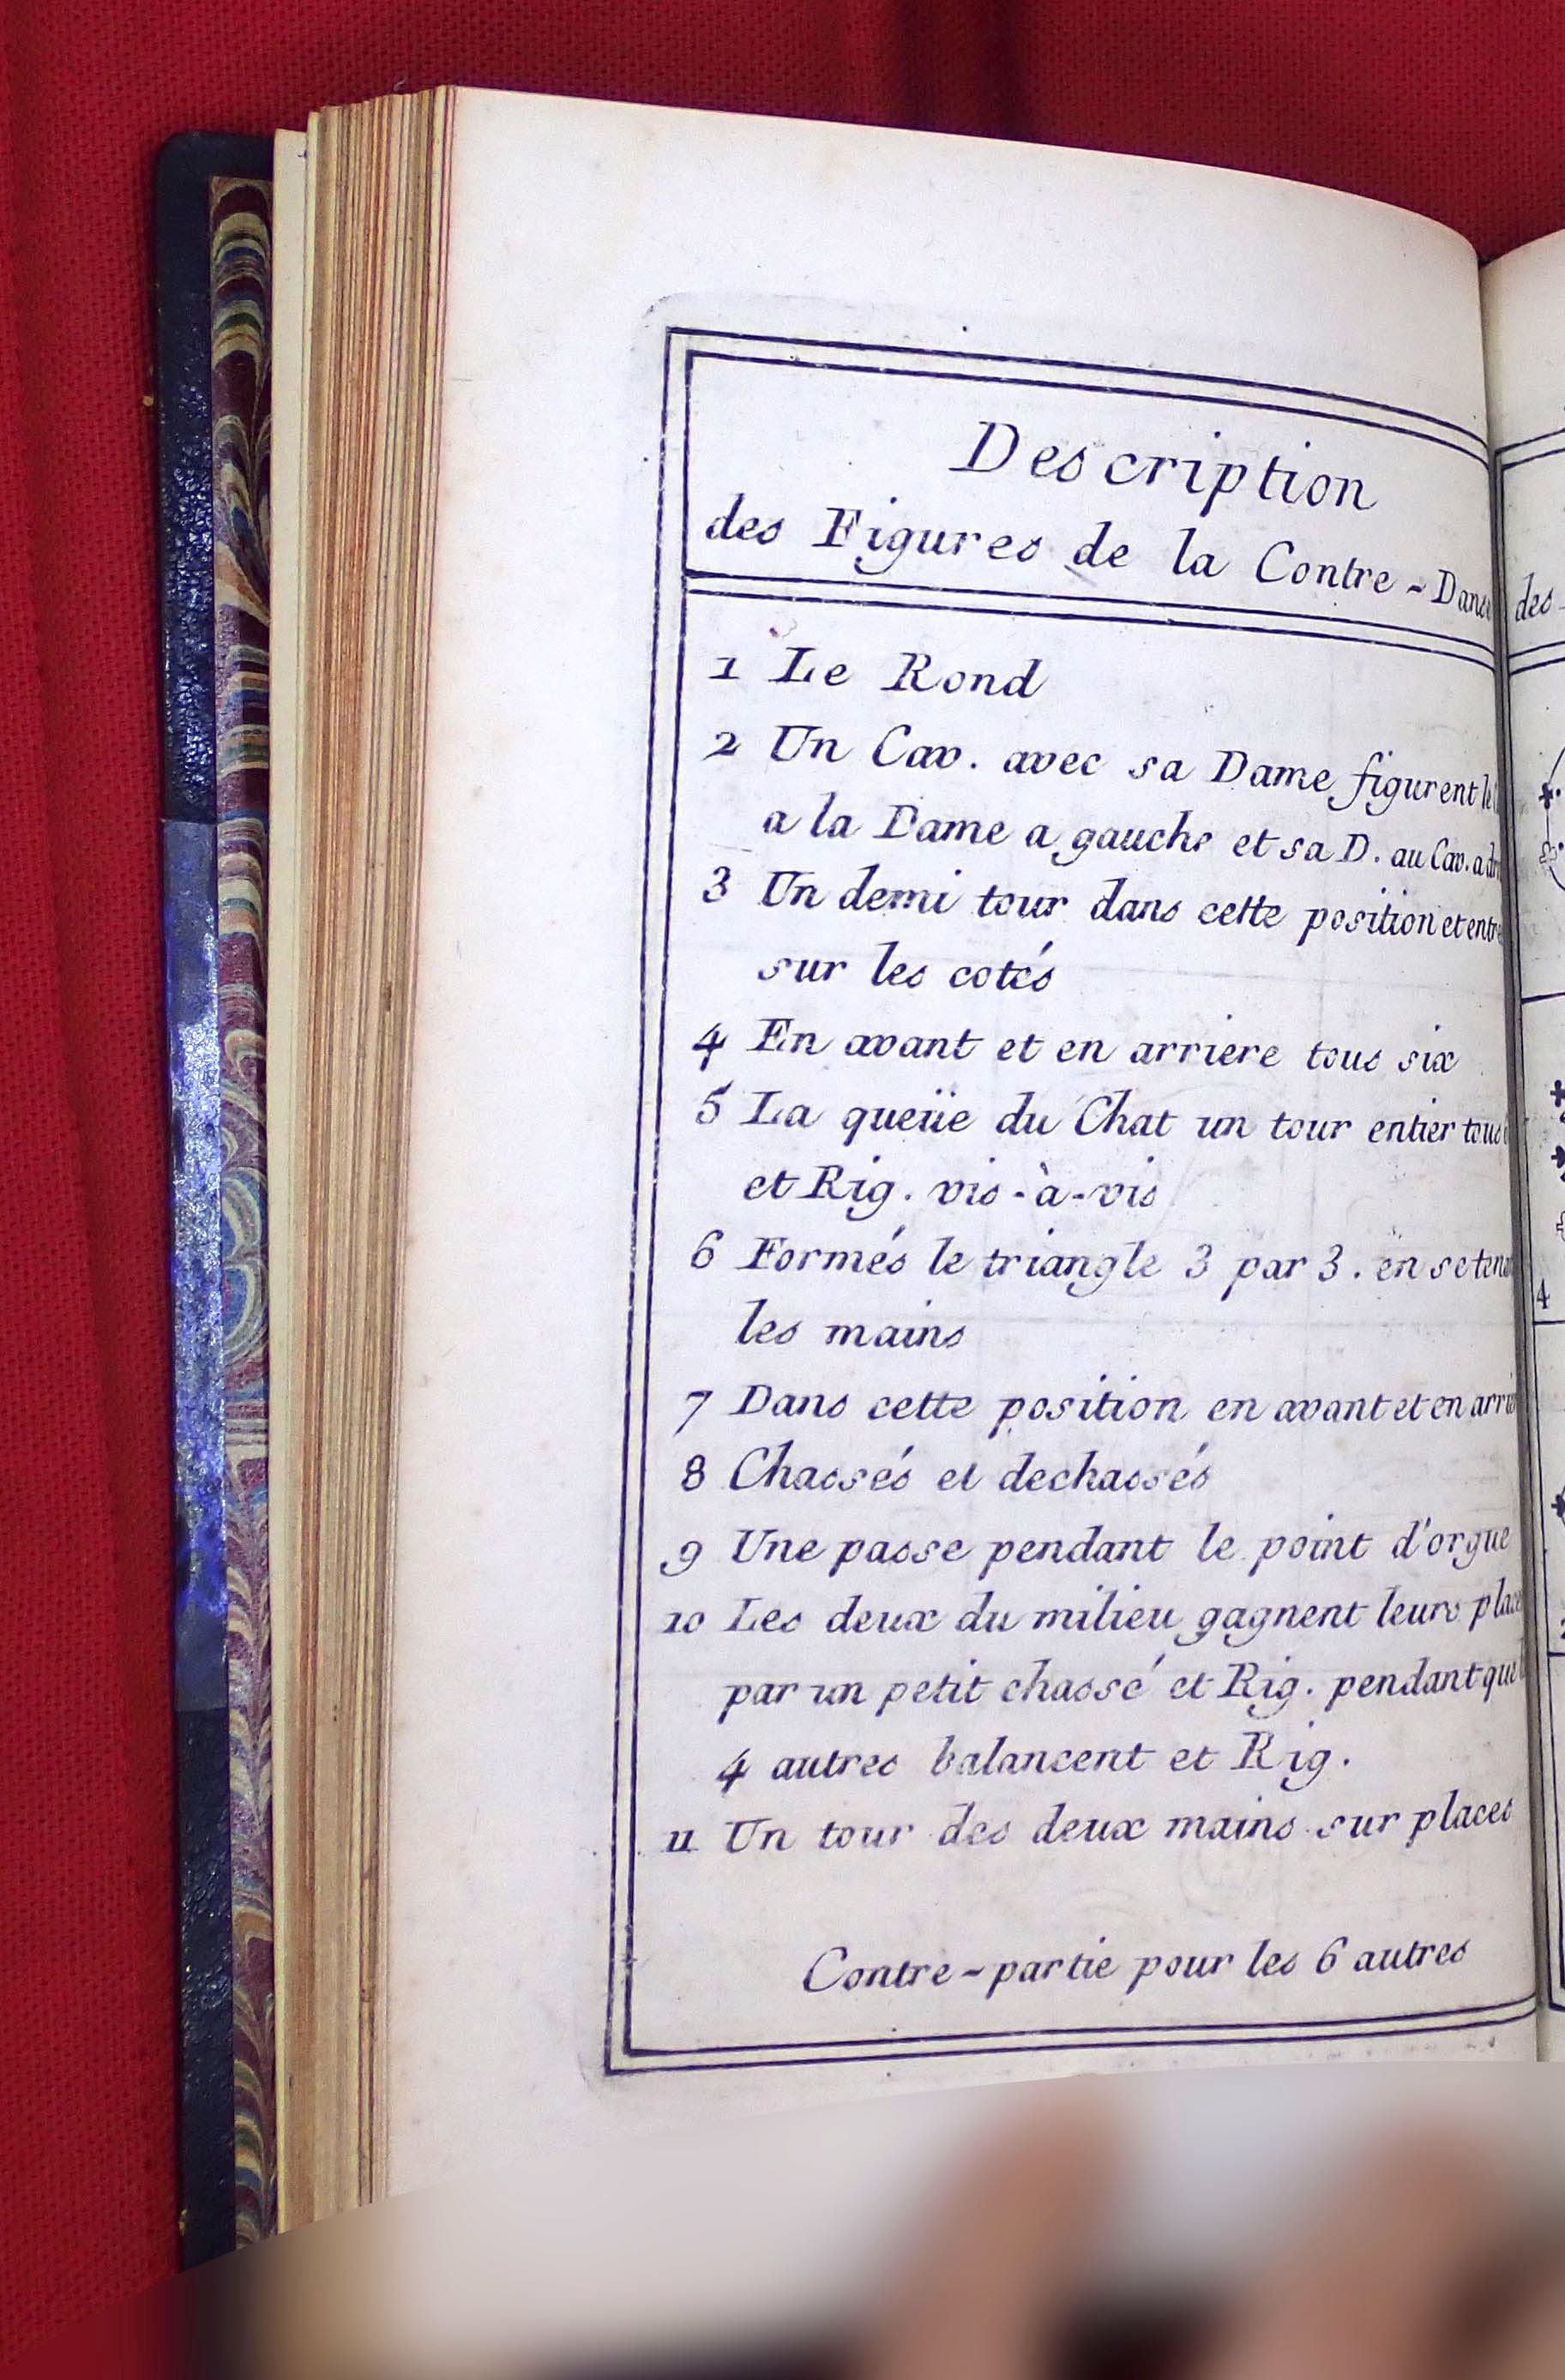 Description
des Figures de la Contre-Danse
1 Le Rond
2 Un Cav. avec sa Dame figurent
a la Dame a gauche et sa D. au Cav. a
3 Un demi tour dans cette position et
sur les cotés
4 En avant et en arriere tous six
5 La queüe du Chat un tour entier tous
et Rig. vis-à-vis
6 Formés le triangle 3 par 3. en se
les mains
7 Dans cette position en avant et en
8 Chassés et dechassés
9 Une passe pendant le point d'orgue
10 Les deux du milieu gagnent leurs
par un petit chassé et Rig. pendant que
4 autres balancent et Rig.
11 Un tour des deux mains sur places
Contre-partie pour les 6 autres
des
4